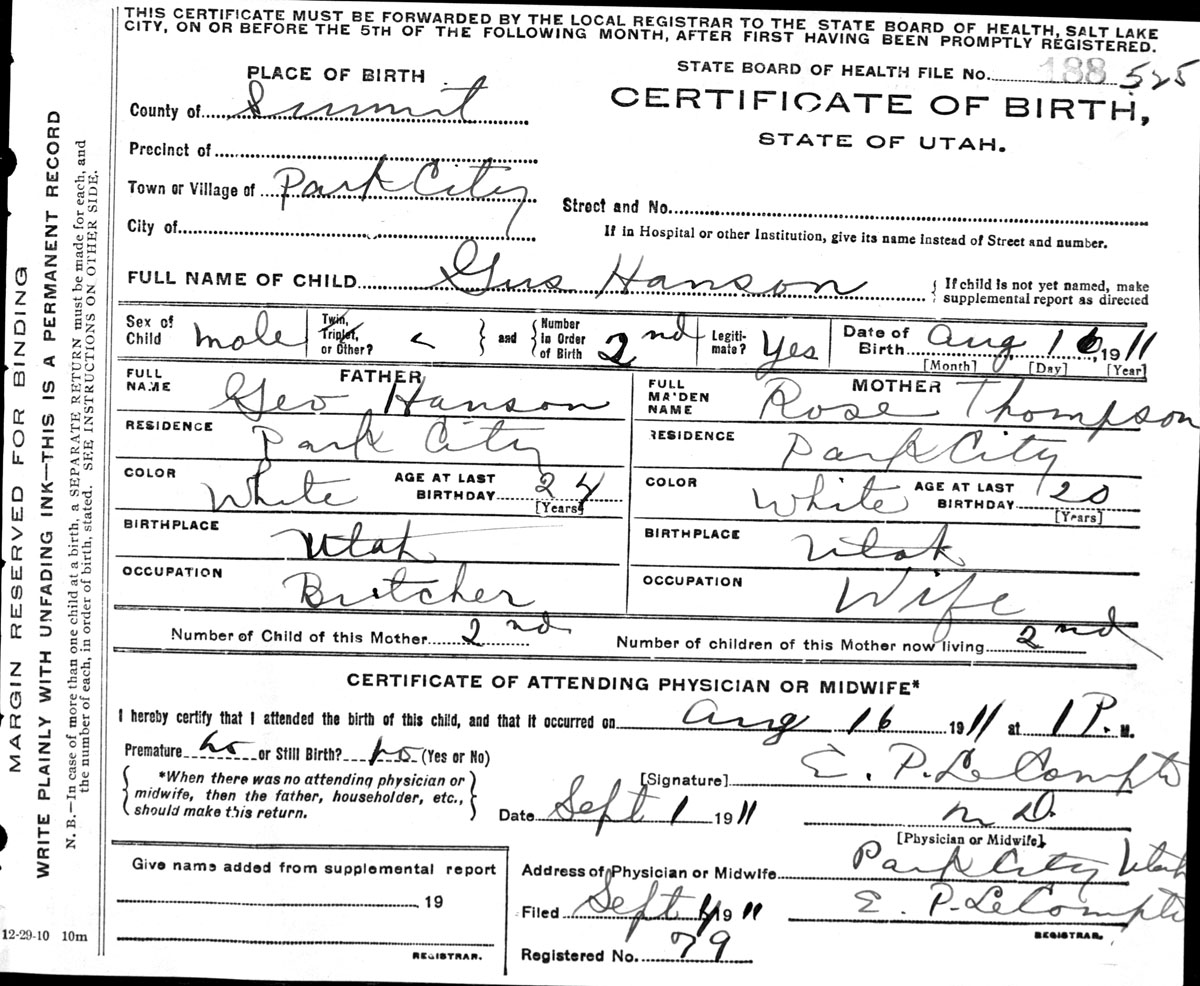 THIS CERTIFICATE MUST BE FORWARDED BY THE LOCAL REGISTRAR TO THE STATE BOARD OF HEALTH, SALT LAKE
CITY, ON OR BEFORE THE 5TH OF THE FOLLOWING MONTH, AFTER FIRST HAVING BEEN PROMPTLY REGISTERED.
PLACE OF BIRTH
STATE BOARD OF HEALTH FILE No. 188 525
County of Summit
CERTIFICATE OF BIRTH,
STATE OF UTAH.
Precinct of
Town or Village of Park City
Street and No.
City of
If in Hospital or other Institution, give its name instead of Street and number.
FULL NAME OF CHILD Gus Hanson { If child is not yet named, make
supplemental report as directed
Sex of Child male Twin, Triplet, or Other? } and { Number in Order of Birth 2nd Legiti-mate? Yes Date of Birth Aug 16 1911
[Month] [Day] [Year]
FATHER
FULL NAME Geo Hanson
MOTHER
FULL MAIDEN NAME Rose Thompson
RESIDENCE Park City
RESIDENCE Park City
COLOR White AGE AT LAST BIRTHDAY 24 [Years]
COLOR White AGE AT LAST BIRTHDAY 20 [Years]
BIRTHPLACE Utah
BIRTHPLACE Utah
OCCUPATION Butcher
OCCUPATION Wife
Number of Child of this Mother 2nd Number of children of this Mother now living 2nd
CERTIFICATE OF ATTENDING PHYSICIAN OR MIDWIFE*
I hereby certify that I attended the birth of this child, and that it occurred on Aug 16 1911 at 1 P. M.
Premature no or Still Birth? no (Yes or No)
{ *When there was no attending physician or
midwife, then the father, householder, etc.,
should make this return. }
[Signature] E. P. LeCompte
Date Sept 1 1911 M D.
[Physician or Midwife]
Give name added from supplemental report
19
REGISTRAR.
Address of Physician or Midwife Park City Utah
Filed Sept 1911 E. P. LeCompte
REGISTRAR.
Registered No. 79
12-29-10 10m
MARGIN RESERVED FOR BINDING
WRITE PLAINLY WITH UNFADING INK—THIS IS A PERMANENT RECORD
N. B.—In case of more than one child at a birth, a SEPARATE RETURN must be made for each, and
the number of each, in order of birth, stated. SEE INSTRUCTIONS ON OTHER SIDE.